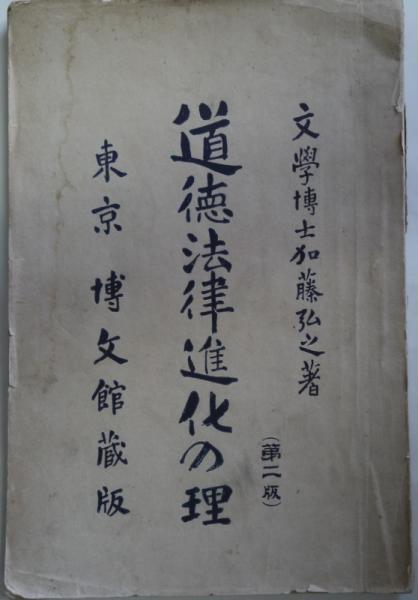 文學博士加藤弘之著
道德法律進化の理
(第二版)
東京 博文館蔵版